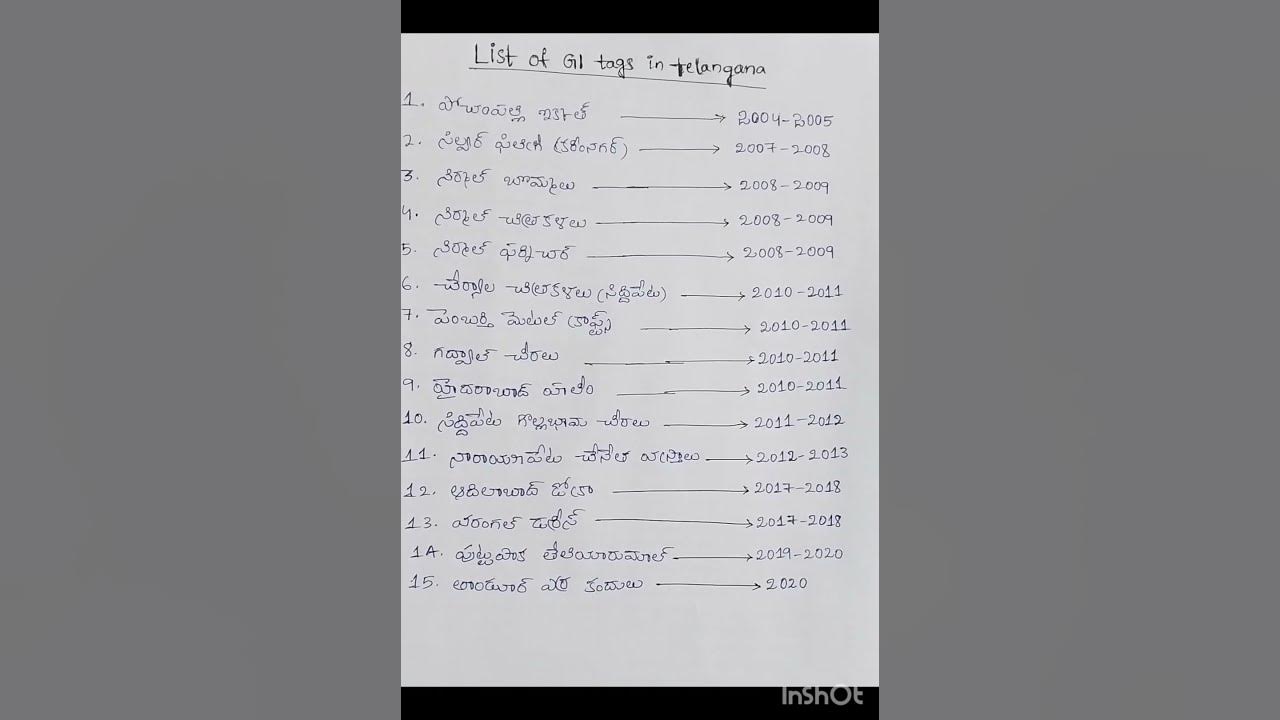 List of GI tags in telangana
1. పోచంపల్లి ఇకాత్ → 2004-2005
2. సిల్వర్ ఫిలిగ్రీ (కరీంనగర్) → 2007-2008
3. నిర్మల్ బొమ్మలు → 2008-2009
4. నిర్మల్ చిత్రకళలు → 2008-2009
5. నిర్మల్ ఫర్నిచర్ → 2008-2009
6. చేర్యాల చిత్రకళలు (సిద్దిపేట) → 2010-2011
7. పెంబర్తి మెటల్ క్రాఫ్ట్స్ → 2010-2011
8. గద్వాల్ చీరలు → 2010-2011
9. హైదరాబాద్ హలీం → 2010-2011
10. సిద్దిపేట గొల్లభామ చీరలు → 2011-2012
11. నారాయణపేట చేనేత వస్త్రాలు → 2012-2013
12. ఆదిలాబాద్ డోక్రా → 2017-2018
13. వరంగల్ డుర్రీస్ → 2017-2018
14. పుట్టపాక తేలియారుమాల్ → 2019-2020
15. తాండూర్ ఎర్ర కందులు → 2020
InShOt